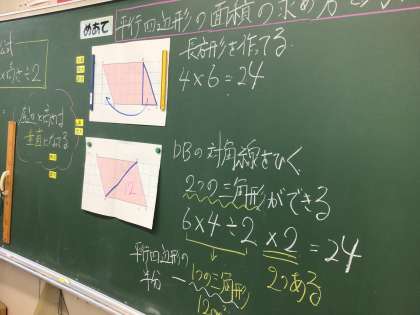 めあて 平行四辺形の面積の求め方を
公式
×高さ÷2
底辺×高さは
垂直になってる
長方形を作ってる
4×6=24
12
DBの対角線をひく
2つの三角形ができる
6×4÷2×2=24
平行四辺形の
半分
1つの三角形
2つある